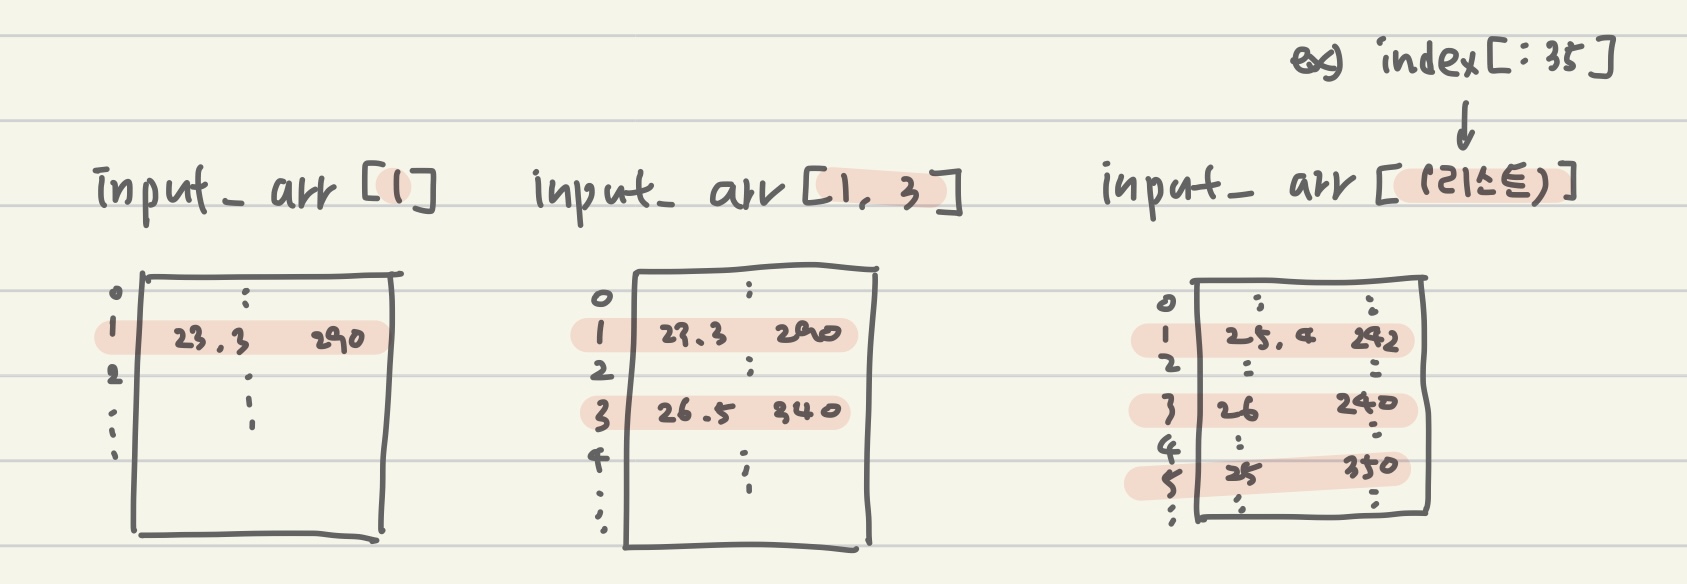 ex) index[:35]
input_arr [1]
input_arr [1, 3]
input_arr [(리스트)]
0
1 23.3 290
2
0
1 23.3 290
2
3 26.5 340
4
0
1 25.4 242
2
3 26 240
4
5 25 350